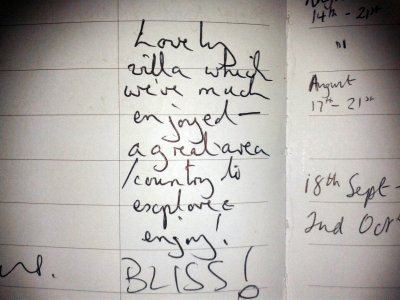 Lovely
villa which
we've much
enjoyed –
a great area
/country to
explore &
enjoy!
BLISS!
14th - 21st
"
August
17th - 21st
18th Sept -
2nd Oct